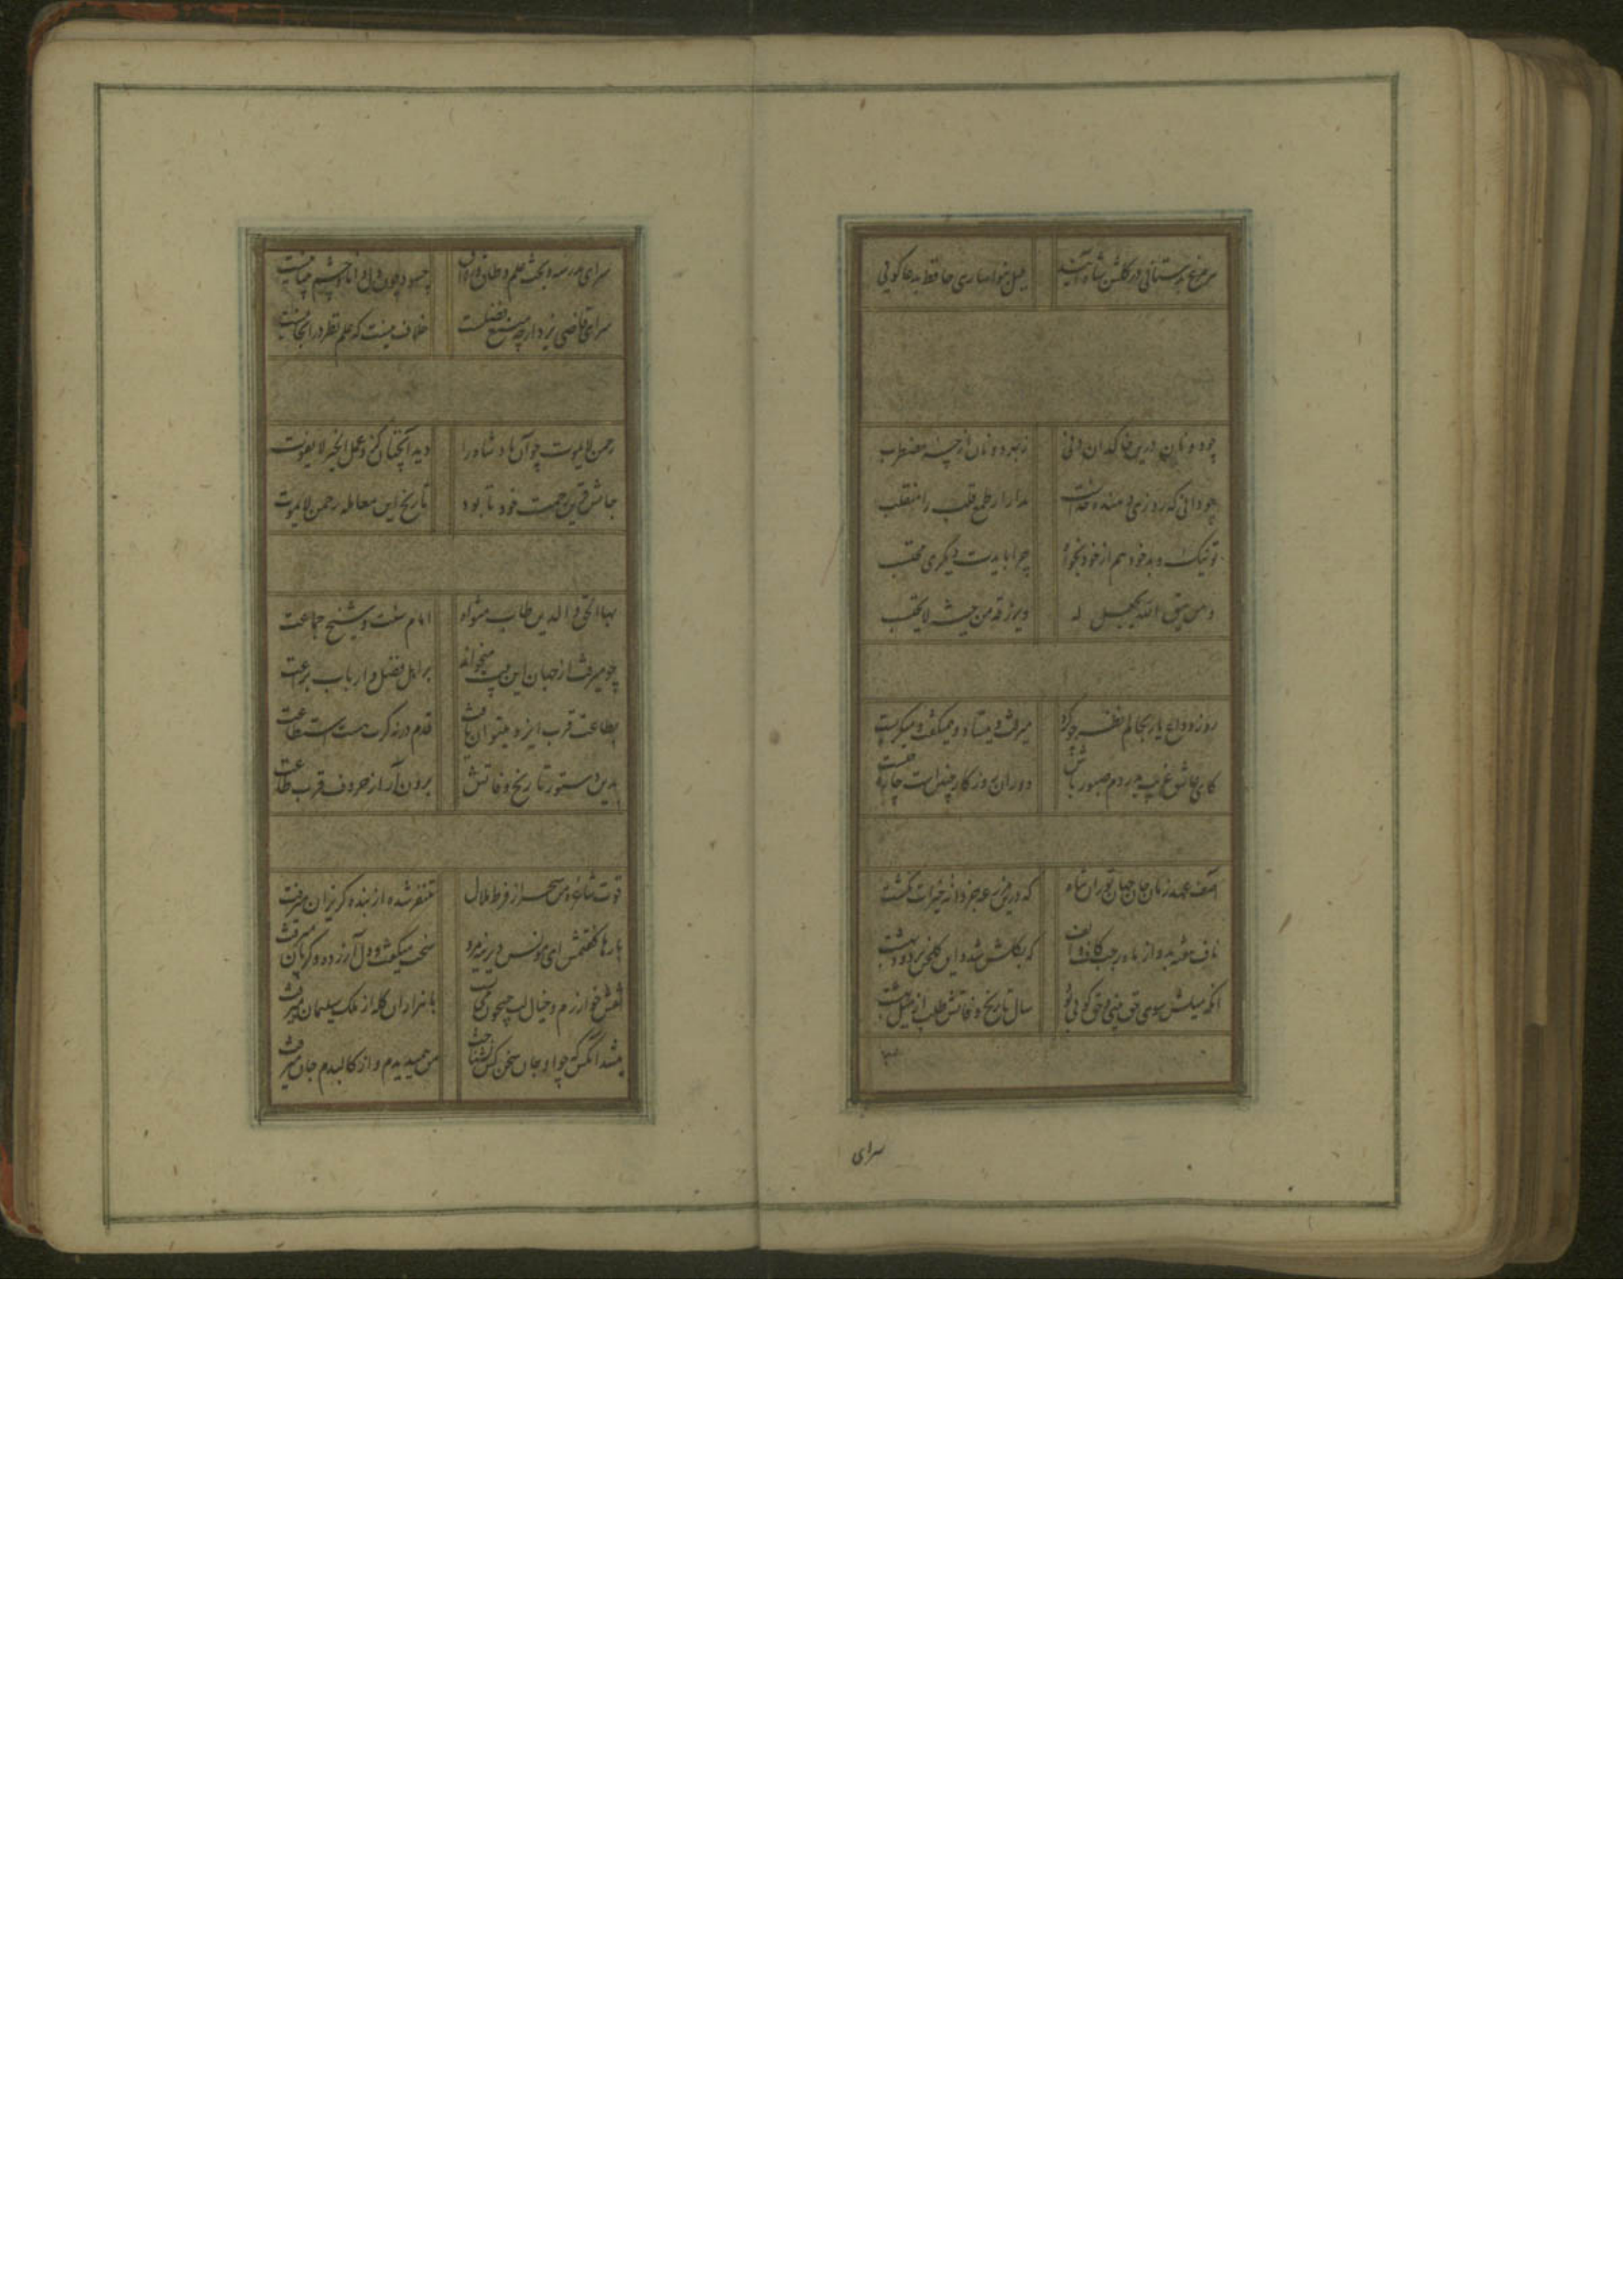 هر مرغ به دستانی در گلشن شاه آید بلبل به نواسازی حافظ به دعاگویی
چو دونان درین خاکدان دنی ز بهر دو نان از چه مضطرب
چو دانی که روزی دهنده خداست مدار از طمع قلب را منقلب
تو نیک و بد خود هم از خود بجو چرا بایدت دیگری محتسب
و من یتق الله یجعل له و یرزقه من حیث لا یحتسب
روز وداع یار بحالم نظر چو کرد میرفت و میستاد و میگفت و میگریست
کای عاشق غریب بدردم صبور باش دوران روزگار چنین است چاره چیست
آصف عهد زمان جان جهان توران شاه که درین مزرعه جز دانه خیرات نکشت
ناف هفته بد و از ماه رجب کاف و الف که بگلشن شد و این گلخن پر دود بهشت
انکه میلش سوی حق بینی و حق گویی بود سال تاریخ وفاتش طلب از میل بهشت
سرای
سرای مدرسه و بحث علم و طاق و رواق چه سود چون دل دانا و چشم بینا نیست
سرای قاضی یزد ارچه منبع فضلست خلاف نیست که علم نظر در آنجا نیست
رحمن لا یموت چو آن پادشاه را دید آنچنان کزو عمل الخیر لا یفوت
جانش قرین رحمت خود تا بود تاریخ این معامله رحمن لا یموت
بهاء الحق و الدین طاب مثواه امام سنت و شیخ جماعت
چو میرفت از جهان این بیت میخواند بر اهل فضل و ارباب براعت
بطاعت قرب ایزد میتوان یافت قدم در نه گرت هست استطاعت
بدین دستور تاریخ وفاتش برون آر از حروف قرب طاعت
قوت شاعره من سحر از فرط ملال متنفر شده از بنده گریزان میرفت
بارها گفتمش ای مونس دیرینه مرو سخت میگفت و دل آزرده و گریان میرفت
نقش خوارزم و خیال لب جیحون می‌بست با هزاران گله از ملک سلیمان میرفت
میشد انکس که چو او جان سخن کس نشناخت من همی دیدم و از کالبدم جان میرفت